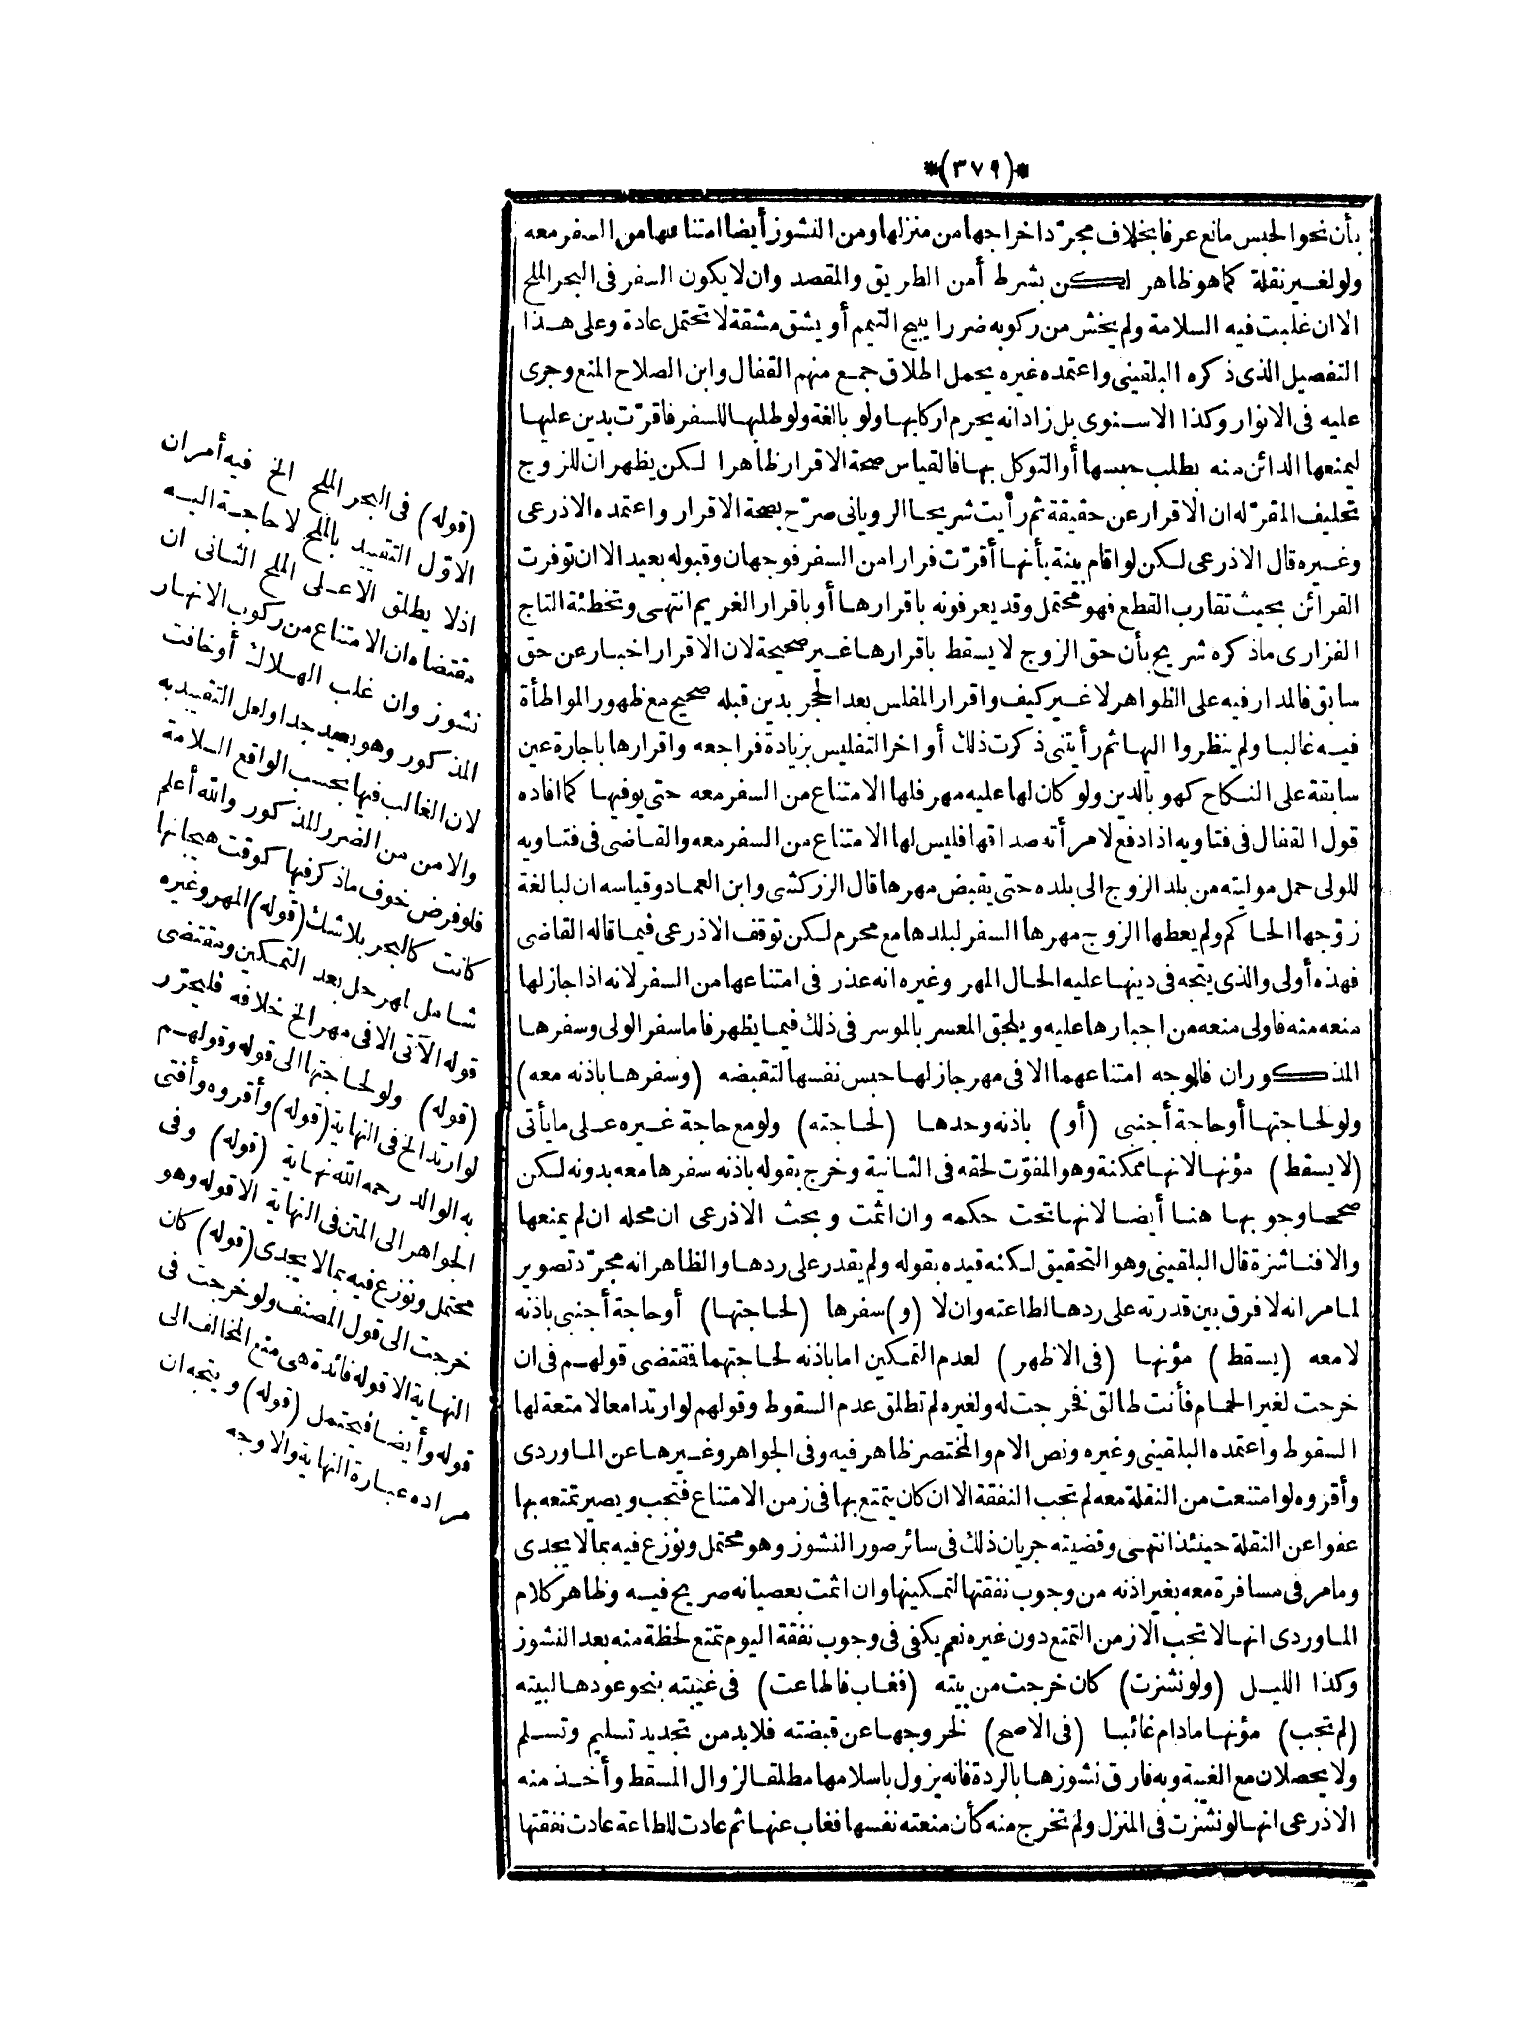 *(٣٧٩)*
بأن نحو الحبس مانع عرفا بخلاف مجرّد اخراجها من منزلها ومن النشوز أيضا امتناعها من السفر معه
ولو لغير نقلة كما هو ظاهر لكن بشرط أمن الطريق والمقصد وان لا يكون السفر فى البحر الملح
الا ان غلبت فيه السلامة ولم يخش من ركوبه ضررا يبيح التيمم أو يشق مشقة لا تحتمل عادة وعلى هذا
التفصيل الذى ذكره البلقينى واعتمده غيره يحمل اطلاق جمع منهم القفال وابن الصلاح المنع وجرى
عليه فى الانوار وكذا الاسنوى بل زاد انه يحرم اركابها ولو بالغة ولو طلبها للسفر فاقرّت بدين عليها
ليمنعها الدائن منه بطلب حبسها أو التوكل بها فالقياس صحة الاقرار ظاهرا لكن يظهر ان للزوج
تحليف المقرّ له ان الاقرار عن حقيقة ثم رأيت شريحا الرويانى صرّح بصحة الاقرار واعتمده الاذرعى
وغيره قال الاذرعى لكن لو اقام بينة بأنها أقرّت فرارا من السفر فوجهان وقبوله بعيد الا ان توفرت
القرائن بحيث تقارب القطع فهو محتمل وقد يعرفونه باقرارها أو باقرار الغريم انتهى وتخطئة التاج
الفزارى ما ذكره شريح بأن حق الزوج لا يسقط باقرارها غير صحيحة لان الاقرار اخبار عن حق
سابق فالمدار فيه على الظواهر لا غير كيف واقرار المفلس بعد الحجر بدين قبله صحيح مع ظهور المواطأة
فيه غالبا ولم ينظروا اليها ثم رأيتنى ذكرت ذلك أواخر التفليس بزيادة فراجعه واقرارها باجارة عين
سابقة على النكاح كهو بالدين ولو كان لها عليه مهر فلها الامتناع من السفر معه حتى يوفيها كما افاده
قول القفال فى فتاويه اذا دفع لامرأته صداقها فليس لها الامتناع من السفر معه والقاضى فى فتاويه
للولى حمل موليته من بلد الزوج الى بلده حتى يقبض مهرها قال الزركشى وابن العماد وقياسه ان لبالغة
زوّجها الحاكم ولم يعطها الزوج مهرها السفر لبلدها مع محرم لكن توقف الاذرعى فيما قاله القاضى
فهذه أولى والذى يتجه فى دينها عليه الحال المهر وغيره انه عذر فى امتناعها من السفر لانه اذا جاز لها
منعه منه فاولى منعه من اجبارها عليه ويلحق المعسر بالموسر فى ذلك فيما يظهر فاما سفر الولى وسفرها
المذكوران فالوجه امتناعهما الا فى مهر جاز لها حبس نفسها لتقبضه (وسفرها باذنه معه)
ولو لحاجتها أو حاجة أجنبى (أو) باذنه وحدها (لحاجته) ولو مع حاجة غيره على ما يأتى
(لا يسقط) مؤنها لانها ممكنة وهو المفوّت لحقه فى الثانية وخرج بقوله باذنه سفرها معه بدونه لكن
صححا وجوبها هنا أيضا لانها تحت حكمه وان اثمت وبحث الاذرعى ان محله ان لم يمنعها
والا فناشزة قال البلقينى وهو التحقيق لكنه قيده بقوله ولم يقدر على ردها والظاهر انه مجرّد تصوير
لما مر انه لا فرق بين قدرته على ردها لطاعته وان لا (و) سفرها (لحاجتها) أو حاجة أجنبى باذنه
لا معه (يسقط) مؤنها (فى الاظهر) لعدم التمكين اما باذنه لحاجتهما فمقتضى قولهم فى ان
خرجت لغير الحمام فأنت طالق فخرجت له ولغيره لم تطلق عدم السقوط وقولهم لو ارتدا معا لا متعة لها
السقوط واعتمده البلقينى وغيره ونص الام والمختصر ظاهر فيه وفى الجواهر وغيرها عن الماوردى
وأقروه لو امتنعت من النقلة معه لم تجب النفقة الا ان كان يتمتع بها فى زمن الامتناع فتجب ويصير تمتعه بها
عفوا عن النقلة حينئذ انتهى وقضيته جريان ذلك فى سائر صور النشوز وهو محتمل ونوزع فيه بما لا يجدى
وما مر فى مسافرة معه بغير اذنه من وجوب نفقتها لتمكينها وان اثمت بعصيانه صريح فيه وظاهر كلام
الماوردى انها لا تجب الا زمن التمتع دون غيره نعم يكفى فى وجوب نفقة اليوم تمتع لحظة منه بعد النشوز
وكذا الليل (ولو نشزت) كان خرجت من بيته (فغاب فاطاعت) فى غيبته بنحو عودها لبيته
(لم تجب) مؤنها ما دام غائبا (فى الاصح) لخروجها عن قبضته فلا بد من تجديد تسليم وتسلم
ولا يحصلان مع الغيبة وبه فارق نشوزها بالردة فانه يزول باسلامها مطلقا لزوال المسقط وأخذ منه
الاذرعى انها لو نشزت فى المنزل ولم تخرج منه كأن منعته نفسها فغاب عنها ثم عادت للطاعة عادت نفقتها
(قوله) فى البحر الملح الخ فيه أمران
الاوّل التقييد بالملح لا حاجة اليه
اذ لا يطلق الا على الملح الثانى ان
مقتضاه ان الامتناع من ركوب الانهار
نشوز وان غلب الهلاك أو خافت
المذكور وهو بعيد جدا ولعل التقييد به
لان الغالب فيها بحسب الواقع السلامة
والامن من الضرر للمذكور والله أعلم
فلو فرض خوف ما ذكر فيها كوقت هيجانها
كانت كالبحر بلا شك (قوله) المهر وغيره
شامل لمهر حل بعد التمكين ومقتضى
قوله الآتى الا فى مهر الخ خلافه فليحرّر
(قوله) ولو لحاجتها الى قوله وقولهم
لو ارتد الخ فى النهاية (قوله) وأقروه وأفتى
به الوالد رحمه الله نهاية (قوله) وفى
الجواهر الى المتن فى النهاية الا قوله وهو
محتمل ونوزع فيه بما لا يجدى (قوله) كان
خرجت الى قول المصنف ولو خرجت فى
النهاية الا قوله فائدة هى متع المخالف الى
قوله وأيضا فيحتمل (قوله) ويتجه ان
مراده عبارة النهاية والاوجه